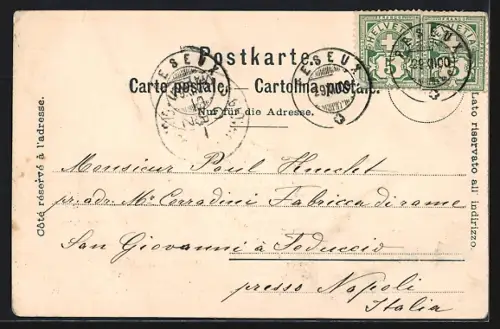 Postkarte.
Carte postale. — Cartolina postale.
Nur für die Adresse.
Côté réservé à l'adresse.
Lato riservato all indirizzo.
FRANCO
HELVETIA
5
FRANCO
5
PESEUX
PESEUX
29 XI 00
PESEUX
29 XI 00
Monsieur Paul
pr. adr. Mr. Corradini Fabricca di rame
San Giovanni à Teduccio
presso Napoli
Italia